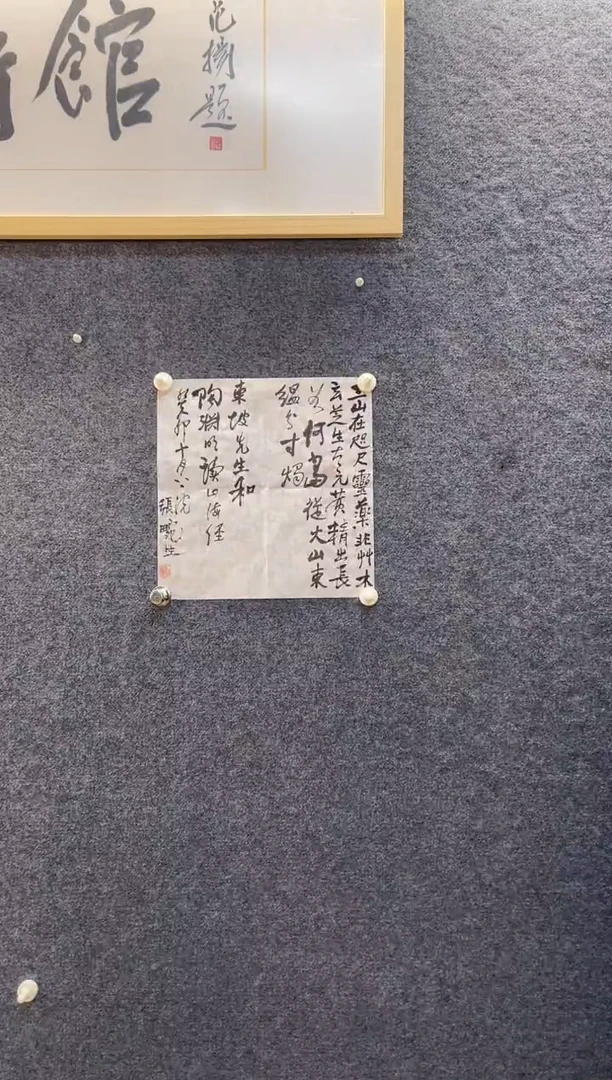 館
范
題
三山在咫尺靈藥非艸木
玄芝生太元黄精出長
谷何當從火山東
緼分寸燭
東坡先生和
陶淵明讀山海經
癸卯十月六
張 生